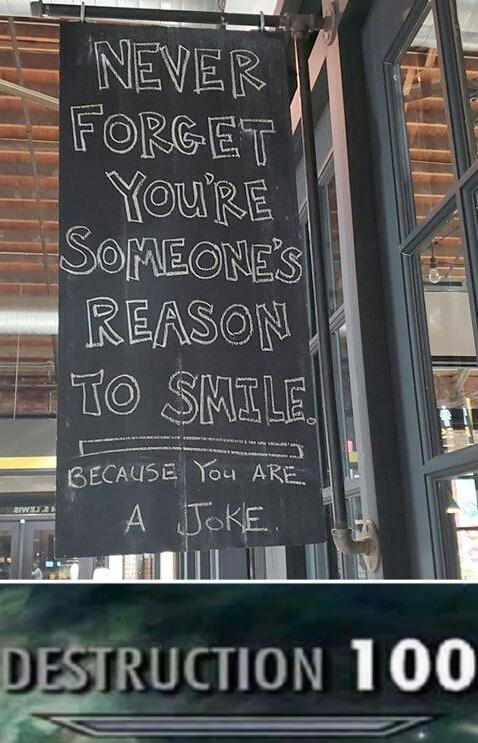 NEVER
FORGET
YOU'RE
SOMEONE'S
REASON
TO SMILE.
BECAUSE YOU ARE
A JOKE.
DESTRUCTION 100